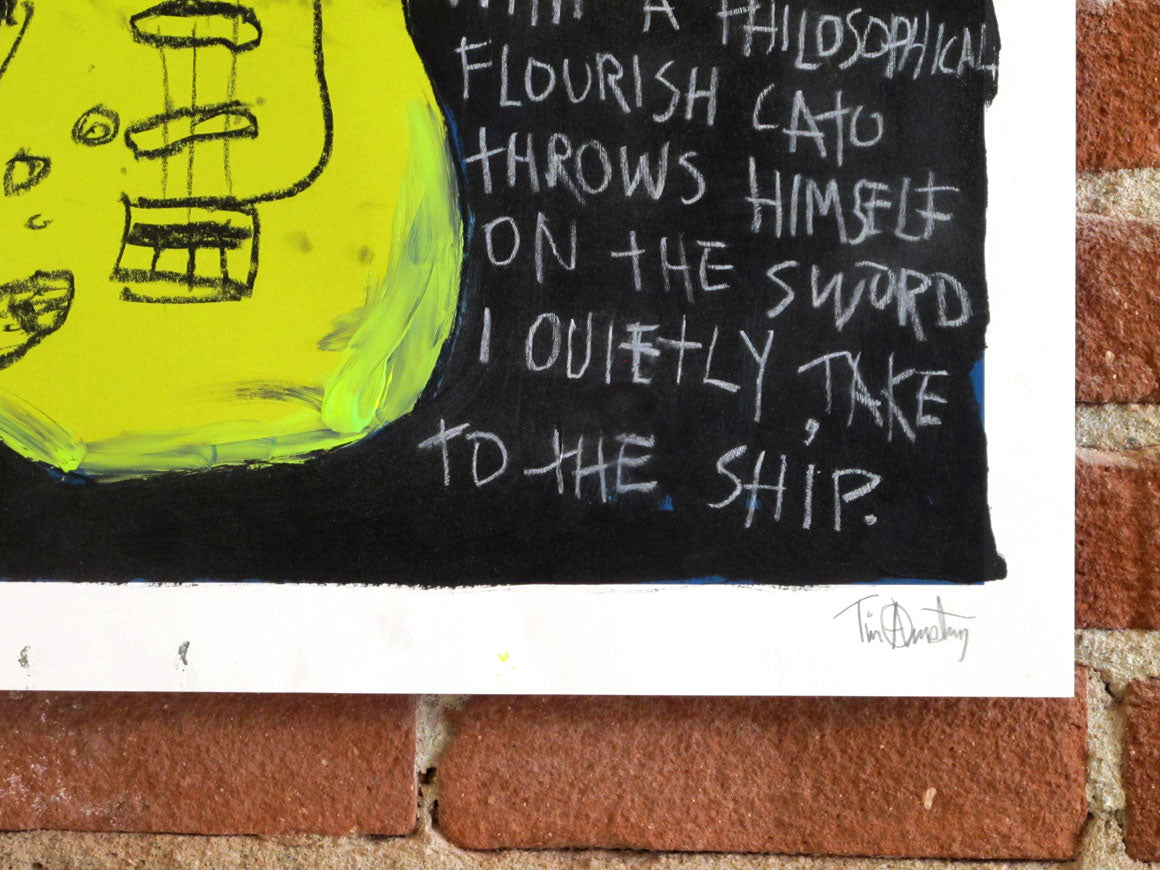 WITH A PHILOSOPHICAL
FLOURISH CATO
THROWS HIMSELF
ON THE SWORD
I QUIETLY, TAKE
TO THE SHIP.
Tim